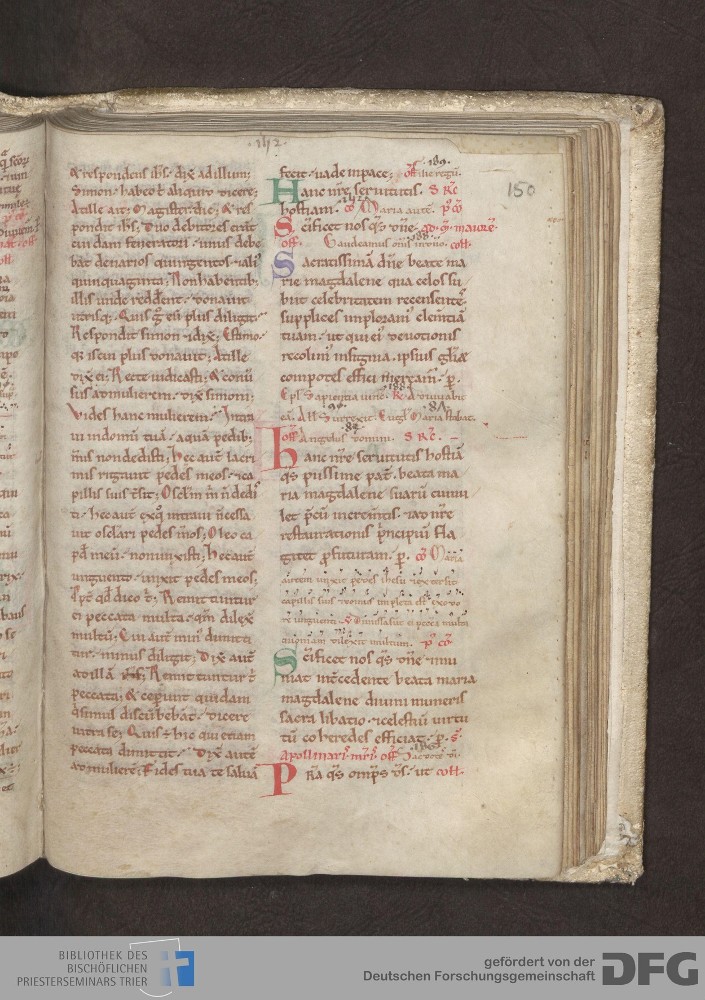 ·142·
150
& respondens ihs. dix̄ ad illum;
Simon. habeo t̄ aliquit dicere;
At ille ait; Magister dic; & res
pondit ihs; Duo debitores erāt
cuidam feneratori. unus debe
bat denarios quingentos. alī
quinquaginta; Non habentib;
illis unde redderent. donauit
utrisq;. Quis g̊ eū plus diligit.
Respondit simon. & dix̄; Estimo.
q̄ is cui plus donauit; At ille
dix̄ ei; Recte iudicasti; & conu̅
sus ad mulierem. dix̄ simoni;
Vides hanc mulierem. Intra
ui in domū tuā. aquā pedib;
meis non dedisti; Hec aut̄ lacri
mis rigauit pedes meos. & ca
pillis suis t̄sit; Osclm̄ m̄ n̄ dedi
ti. hec aut̄ ex q̊ intrauit n̄ cessa
uit osclari pedes meos; Oleo ca
put meū. non unxisti; hec aut̄
unguento. unxit pedes meos;
Ppt̄ qd̄ dico t̄; Remittuntur
ei peccata multa. qm̄ dilexit
multū; Cui aut̄ min' dimitti
tur. minus diligit; Dix̄ aut̄
ad illā ihs; Remittuntur t̄
peccata; & ceperunt qui dam
qui simul discūbebāt. dicere
intra se; Quis ē hic qui etiam
peccata dimittit. Dix̄ aut̄
ad mulierē; Fides tua te saluā
fecit. uade in pace; off̄ filie regū. 189.
Hanc nr̄e seruitutis. S R̄C
hostiam. c̄o Maria aut̄e. p̄ c̄o
Scificet nos q̄s dn̄e.
off. Gaudeamus om̄s in dn̄o. coll.
Sacratissimā dn̄e beate ma
rie magdalene qua celos su
biit celebritatem recensente
supplices imploram' clem̄tiā
tuam. ut qui ei deuotionis
recolim' insignia. ipsius glīe
compotes effici mereamur. p.
Epl̄ Sapientia uinc̄. R̄ Adiuuabit
eā. All̄ Surrexit. Eugl̄ Maria stabat.
off̄ Angelus domini. S R̄C.
Hanc nr̄e seruitutis hostiā
q̄s piissime pat̄. beata ma
ria magdalene suarū cumu
let p̄cū meritis. & ad nr̄e
restaurationis principiū fla
gitet profuturam. p. c̄o Maria
autem unxit pedes ihesu & extersit
capillis suis & domus impleta est ex odo
re unguenti. Dimissa sūt ei peccata multa
quoniam dilexit multum. p̄ c̄o
Scificet nos q̄s dn̄e & mu
niat intercedente beata maria
magdalene diuini muneris
sacra libatio. & celestiū uirtu
tū coheredes efficiat. p. S.
Apollinaris mr̄is. off̄ Sacerdotes di.
Pr̄a q̄s omp̄s ds. ut coll.
BIBLIOTHEK DES
BISCHÖFLICHEN
PRIESTERSEMINARS TRIER
gefördert von der
Deutschen Forschungsgemeinschaft
DFG